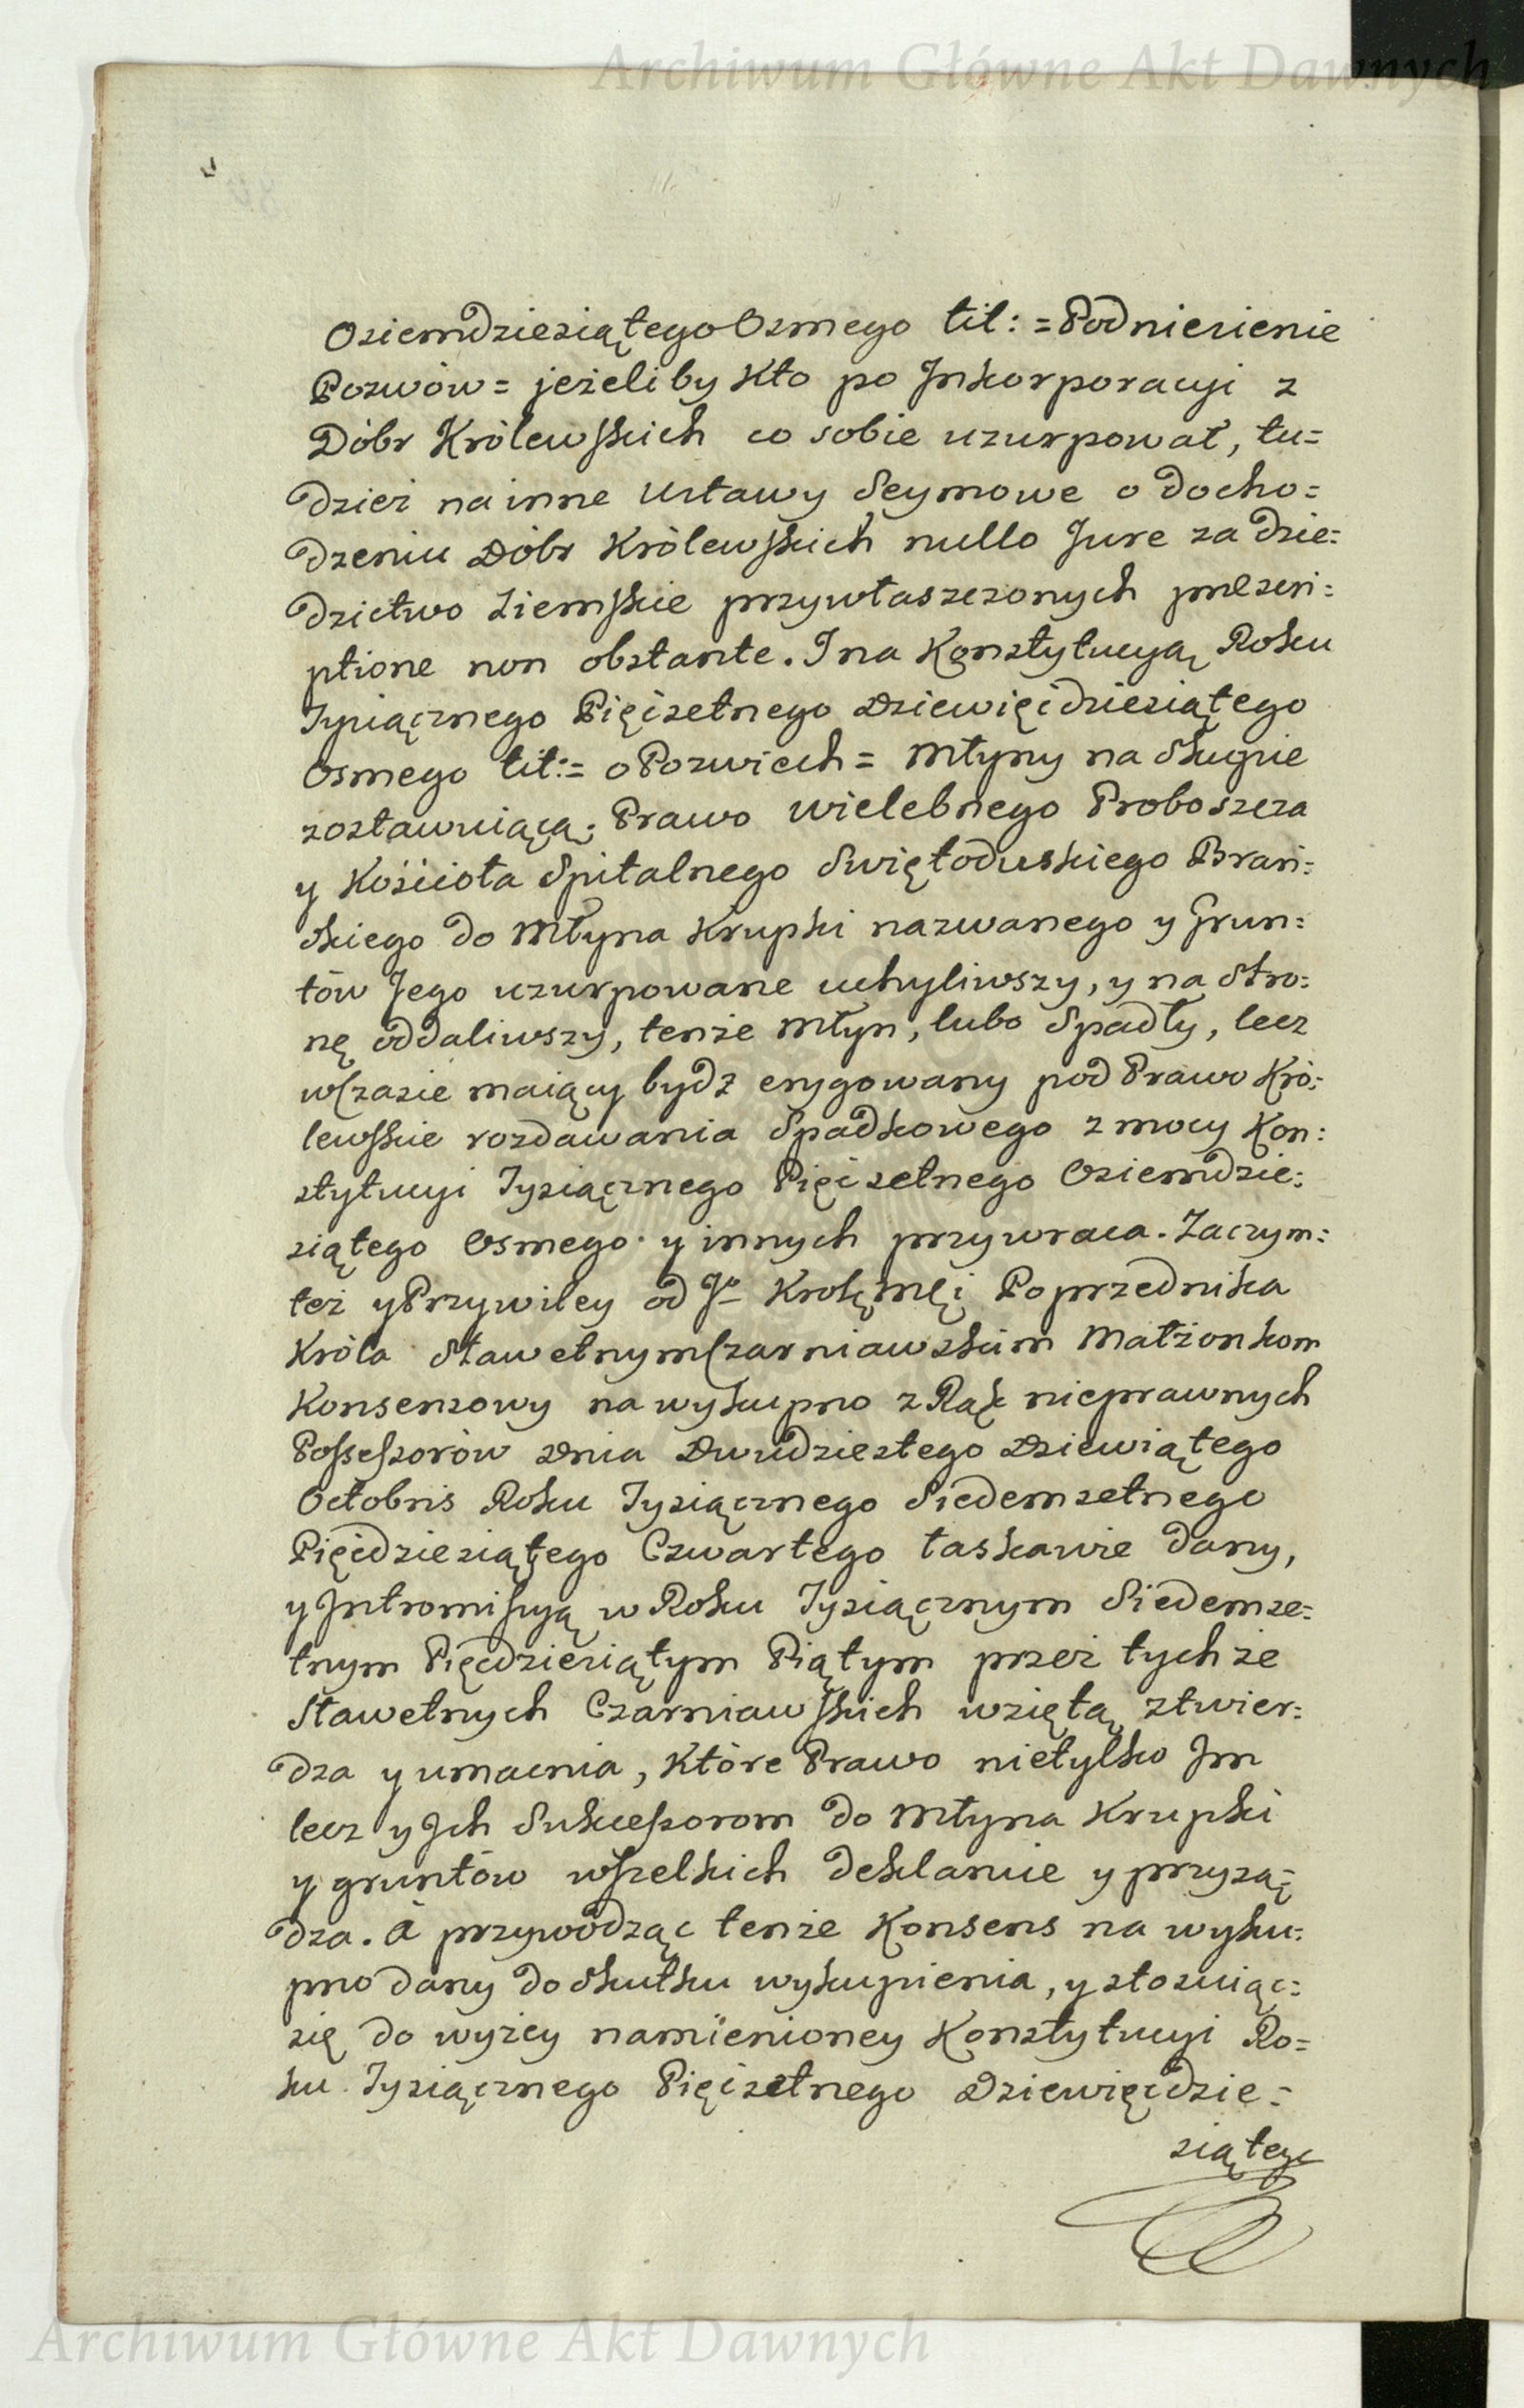 Archiwum Główne Akt Dawnych
Osiemdziesiątego Osmego tit: = Podniesienie
Pozwów = jeżeliby Kto po Inkorporacyi z
Dóbr Królewskich co sobie uzurpował, tu=
dzież na inne Ustawy Seymowe o docho=
dzeniu Dóbr Królewskich nullo Jure za dzie=
dzictwo Ziemskie przywłaszczonych prescri=
ptione non obstante. I na Konstytucyą Roku
Tysiącznego Pięćsetnego Dziewięćdziesiątego
Osmego tit: = o Pozwiech = Młyny na
zostawuiącą; Prawo Wielebnego Proboszcza
y Kościoła Spitalnego Swiętoduskiego Brań=
skiego do Młyna Krupki nazwanego y Grun=
tów Jego uzurpowane uchyliwszy, y na Stro=
nę oddaliwszy, tenże Młyn, lubo Spadły, lecz
w Czasie maiący bydź erygowany pod Prawo Kró=
lewskie rozdawania Spadkowego z mocy Kon=
stytucyi Tysiącznego Pięćsetnego Osiemdzie=
siątego Osmego y innych przywraca. Zaczym=
też y Przywiley od Poprzednika
Króla Sławetnym Czarniawskim Małżonkom
Konsensowy na wykupno z Rąk nieprawnych
Possessorów Dnia Dwudziestego Dziewiątego
Octobris Roku Tysiącznego Siedemsetnego
Pięćdziesiątego Czwartego łaskawie dany,
y Intromissyą w Roku Tysiącznym Siedemse=
tnym Pięćdziesiątym Piątym przez tychże
Sławetnych Czarniawskich wziętą ztwier=
dza y umacnia, Które Prawo nietylko Im
lecz y Ich Sukcessorom do Młyna Krupki
y gruntów wszelkich deklaruie y przysą=
dza. A przywodząc tenże Konsens na wyku=
pno dany do Skutku wykupienia, y stosuiąc=
się do wyżey namienioney Konstytucyi Ro=
ku Tysiącznego Pięćsetnego Dziewięćdzie=
siątego
Archiwum Główne Akt Dawnych